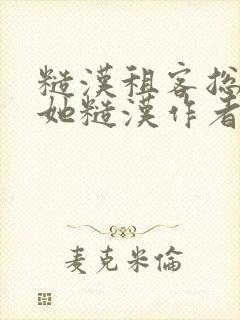 糙漢租客撿
她糙漢作者
麦克米倫